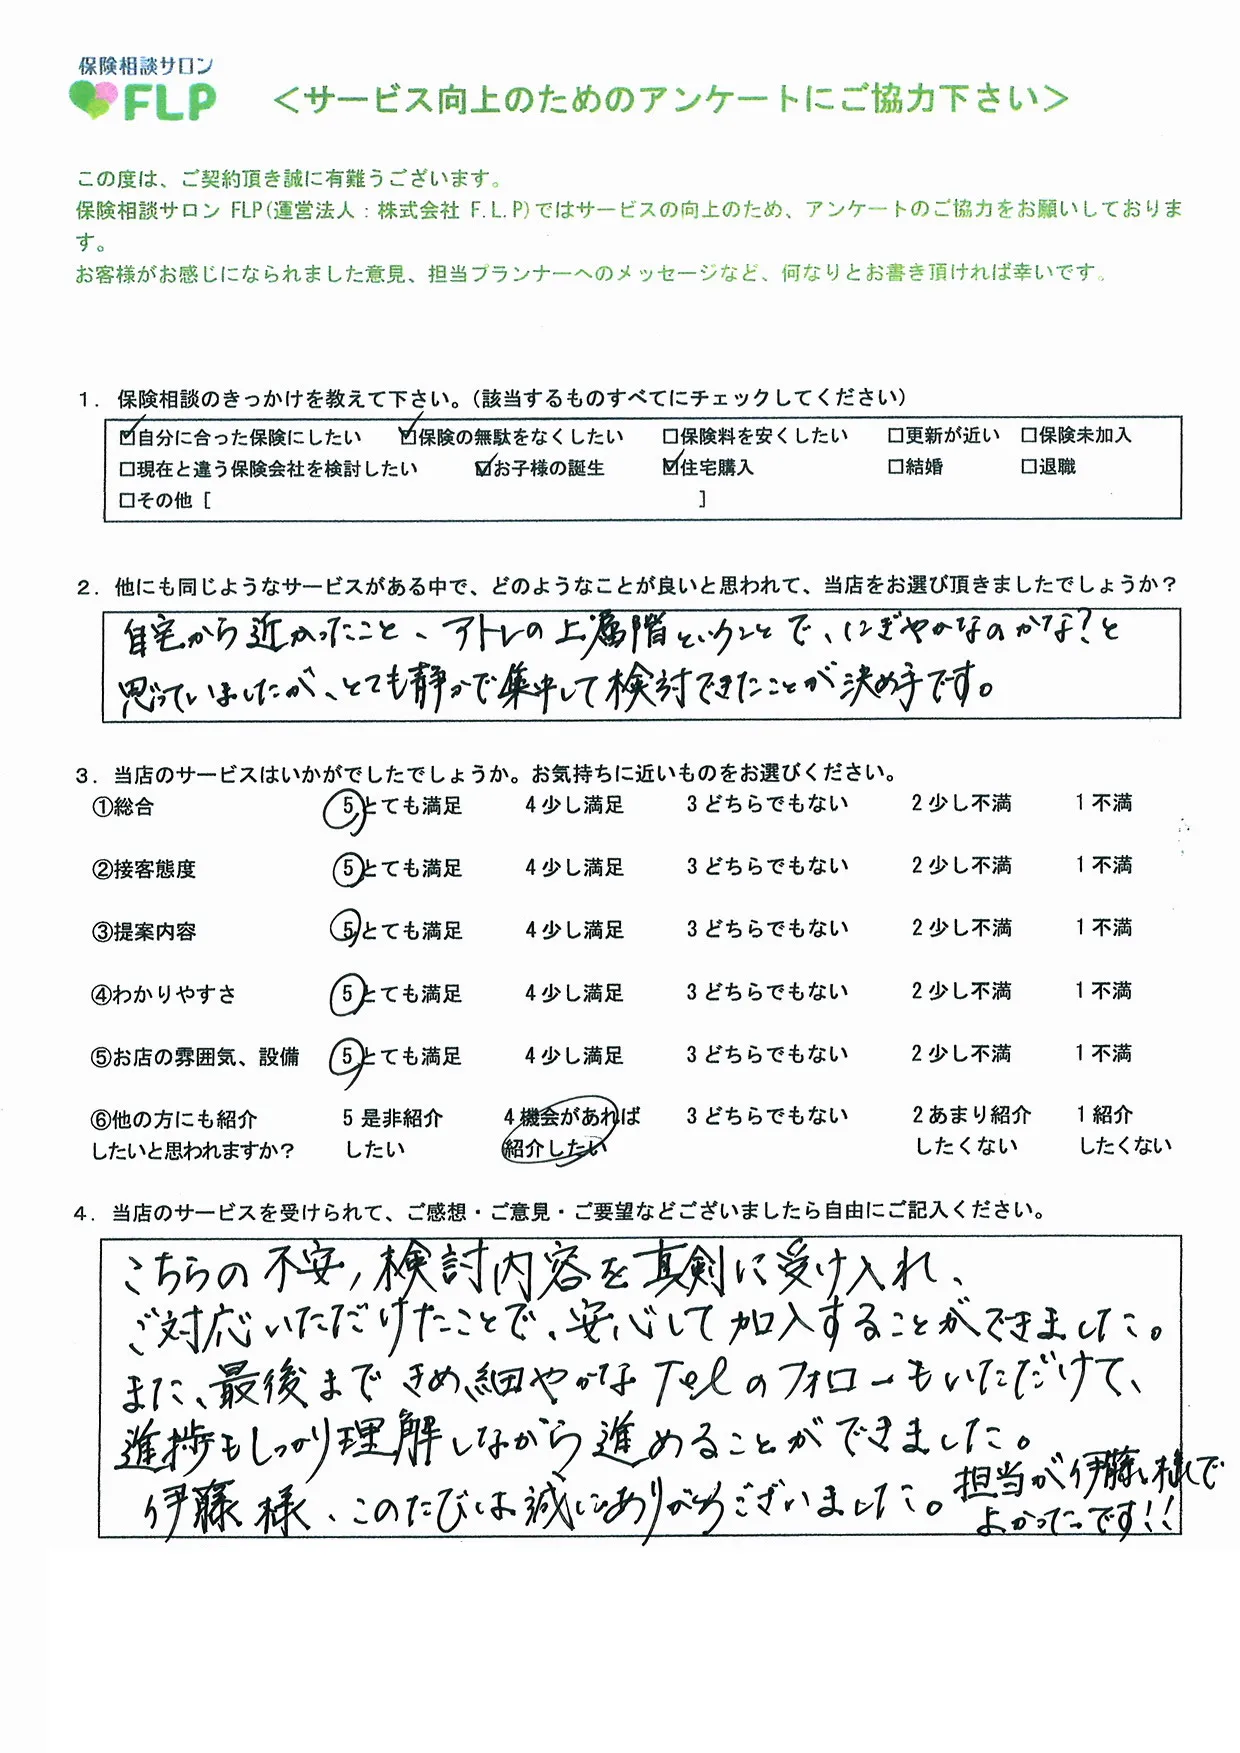 保険相談サロン
FLP
＜サービス向上のためのアンケートにご協力下さい＞
この度は、ご契約頂き誠に有難うございます。
保険相談サロン FLP(運営法人：株式会社 F.L.P)ではサービスの向上のため、アンケートのご協力をお願いしておりま
す。
お客様がお感じになられました意見、担当プランナーへのメッセージなど、何なりとお書き頂ければ幸いです。
１．保険相談のきっかけを教えて下さい。（該当するものすべてにチェックしてください）
☑自分に合った保険にしたい ☑保険の無駄をなくしたい □保険料を安くしたい □更新が近い □保険未加入
□現在と違う保険会社を検討したい ☑お子様の誕生 ☑住宅購入 □結婚 □退職
□その他［ ］
２．他にも同じようなサービスがある中で、どのようなことが良いと思われて、当店をお選び頂きましたでしょうか？
自宅から近かったこと、アトレの上層階ということで、にぎやかなのかな？と
思っていましたが、とても静かで集中して検討できたことが決め手です。
３．当店のサービスはいかがでしたでしょうか。お気持ちに近いものをお選びください。
①総合 5 とても満足 4 少し満足 3 どちらでもない 2 少し不満 1 不満
②接客態度 5 とても満足 4 少し満足 3 どちらでもない 2 少し不満 1 不満
③提案内容 5 とても満足 4 少し満足 3 どちらでもない 2 少し不満 1 不満
④わかりやすさ 5 とても満足 4 少し満足 3 どちらでもない 2 少し不満 1 不満
⑤お店の雰囲気、設備 5 とても満足 4 少し満足 3 どちらでもない 2 少し不満 1 不満
⑥他の方にも紹介 5 是非紹介 4 機会があれば 3 どちらでもない 2 あまり紹介 1 紹介
したいと思われますか？ したい 紹介したい したくない したくない
４．当店のサービスを受けられて、ご感想・ご意見・ご要望などございましたら自由にご記入ください。
こちらの不安、検討内容を真剣に受け入れ、
ご対応いただけたことで、安心して加入することができました。
また、最後まできめ細やかなTelのフォローもいただけて、
進捗もしっかり理解しながら進めることができました。
伊藤様、このたびは誠にありがとうございました。 担当が伊藤様で
よかったです!!